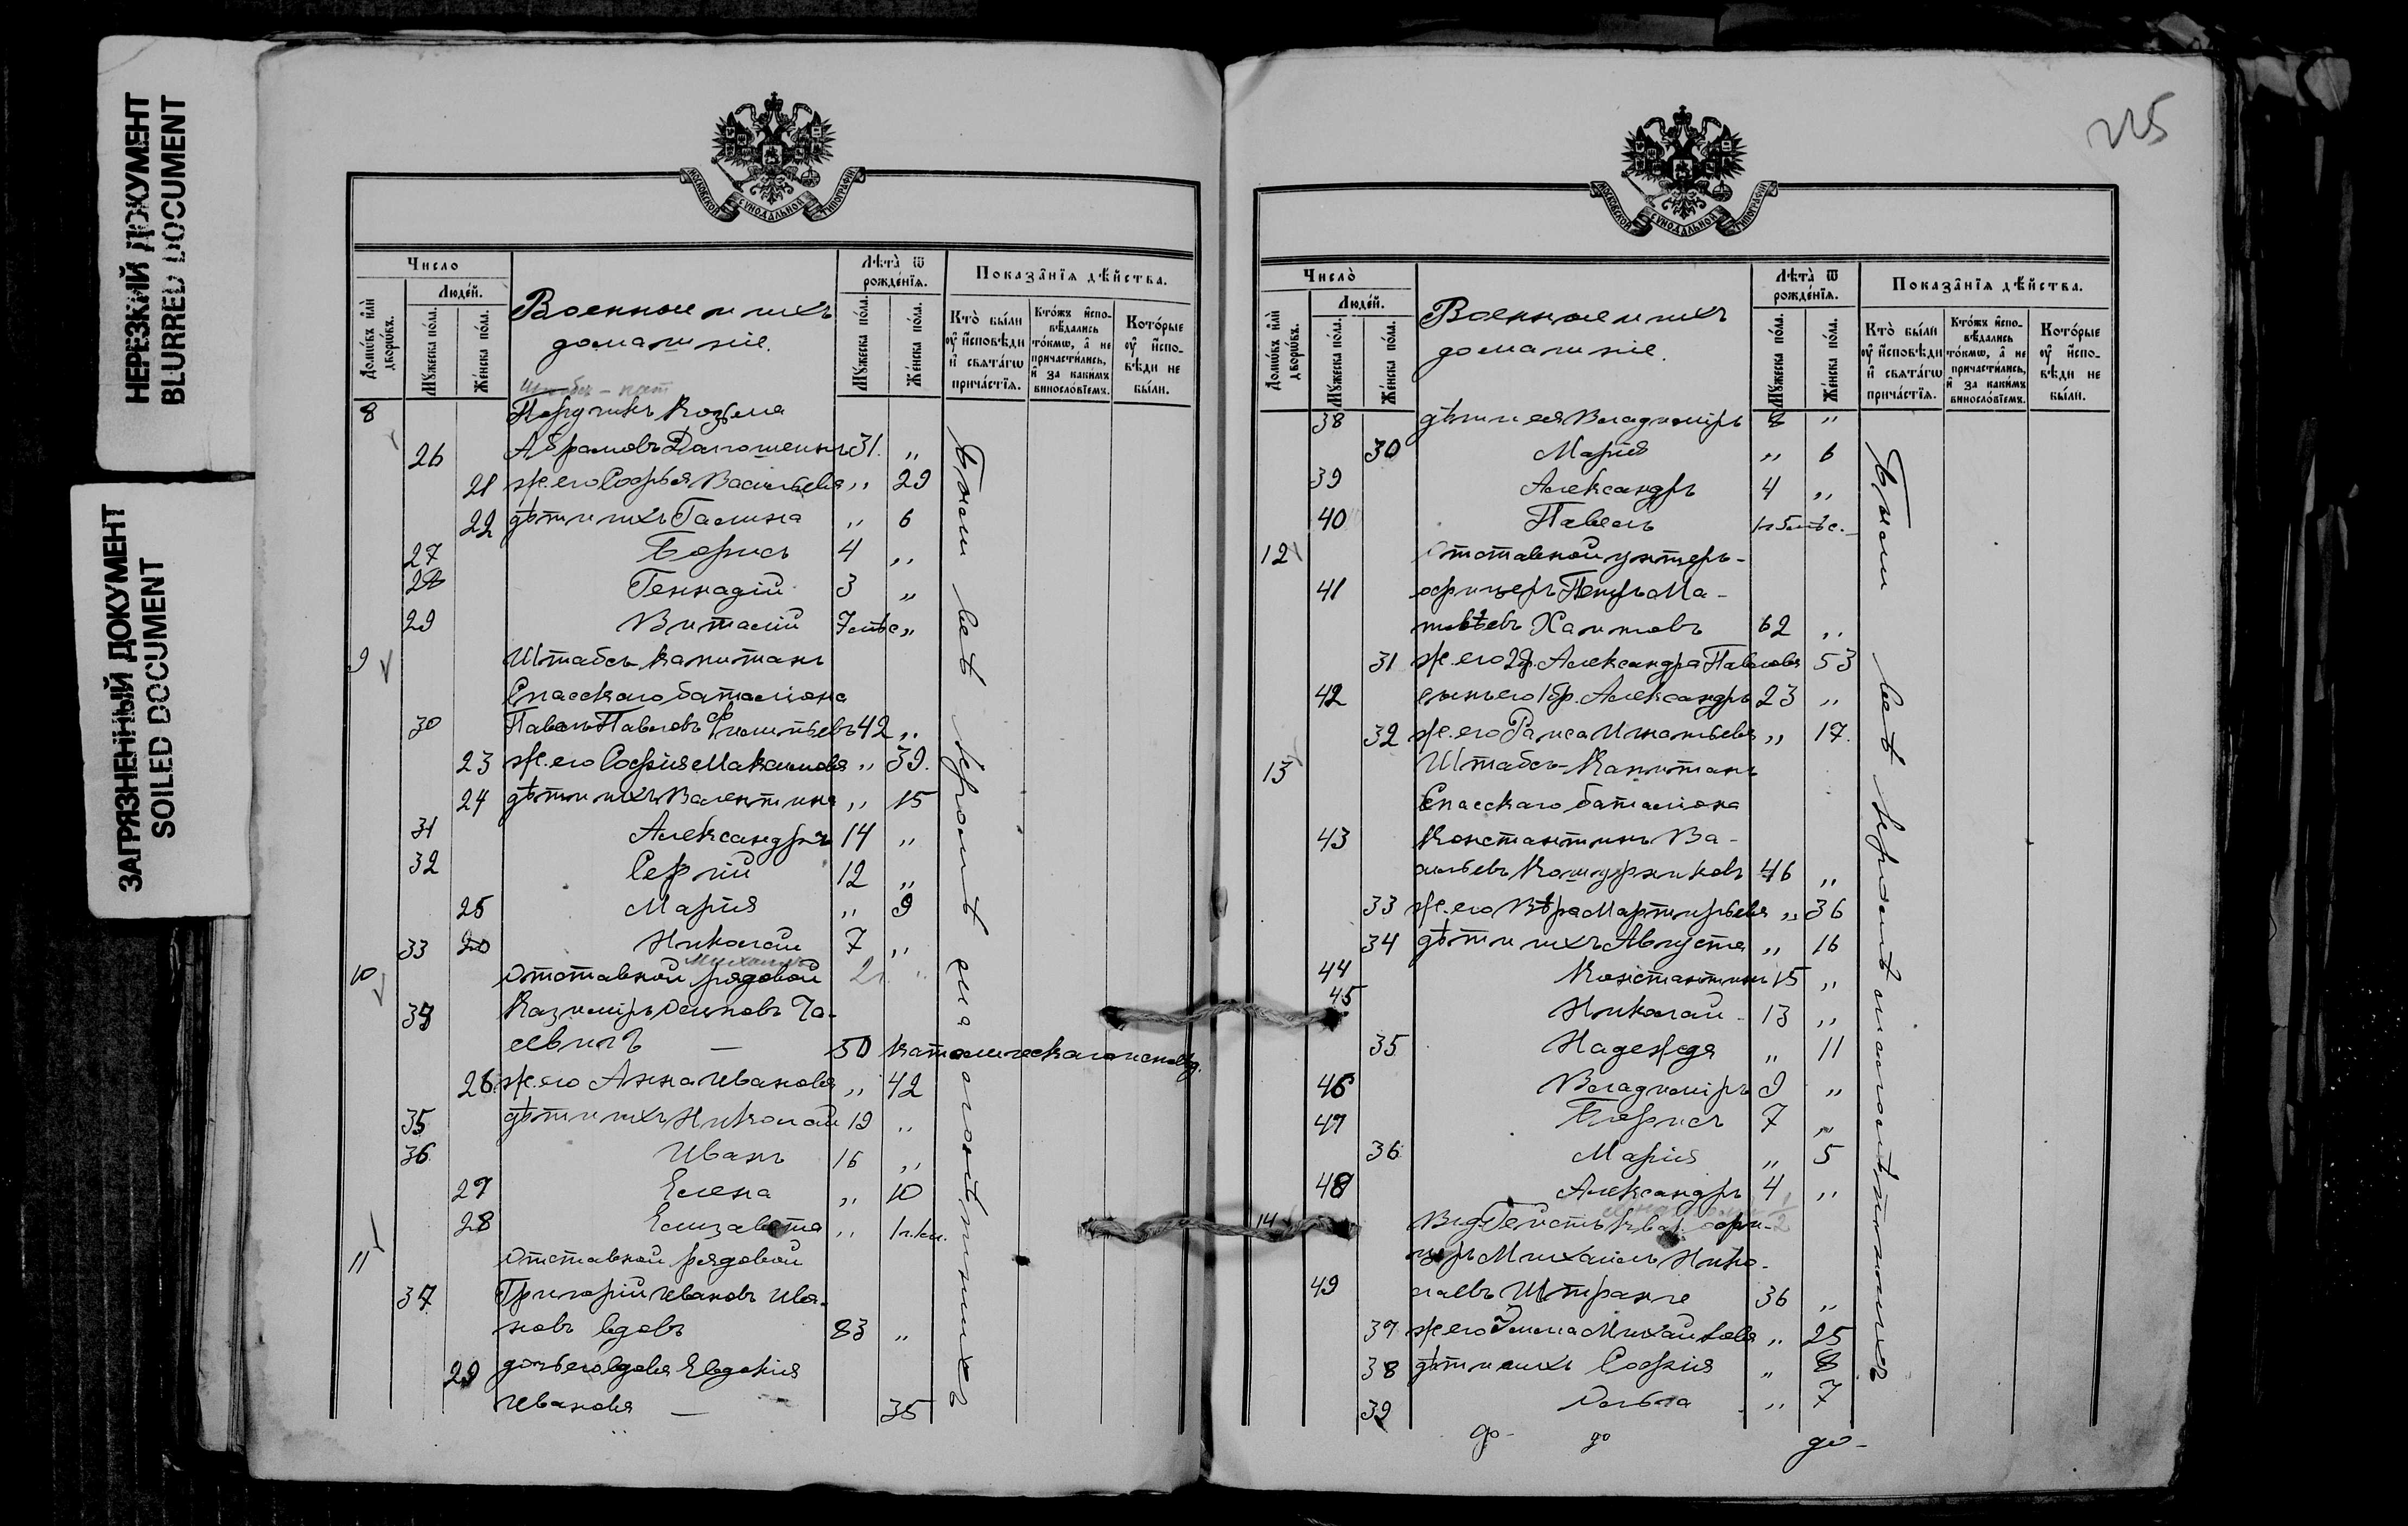 НЕРЕЗКИЙ ДОКУМЕНТ
BLURRED DOCUMENT
ЗАГРЯЗНЕННЫЙ ДОКУМЕНТ
SOILED DOCUMENT
МОСКОВСКОЙ СѴНОДАЛЬНОЙ ТИПОГРАФІИ
Число
Людей.
Домѡвъ или дворѡвъ.
Мꙋжеска пола.
Женска пола.
Военные и ихъ
домашніе.
Лѣта ѿ рожденїѧ.
Мꙋжеска пола.
Женска пола.
Показанїѧ дѣйства.
Кто были оу исповѣди и свѧтагѡ причастїѧ.
Ктожъ исповѣдались токмѡ, а не причастились, и за какимъ винословїемъ.
Которые оу исповѣди не были.
8 Поручикъ Козьма
26 Абрамовъ 31 „
21 ж. его Софья Васильева „ 29
22 дѣти ихъ Галина „ 6
27 Борисъ 4 „
28 Геннадій 3 „
29 Виталій 7 мѣс „
9 Штабсъ Капитанъ
Спасскаго баталіона
30 Павелъ Павловъ 42 „
23 ж. его Софія Максимова „ 39.
24 дѣти ихъ Валентина „ 15
31 Александръ 14 „
32 Сергій 12 „
25 Марія „ 9
33 Николай 7 „
10 Отставной рядовой 21
34 Казиміръ Осиповъ
50 католическаго исповѣд.
26 ж. его Анна Иванова „ 42
35 дѣти ихъ Николай 19 „
36 Иванъ 16 „
27 Елена „ 10
28 Елизавета „
11 Отставной рядовой
37 Григорій Ивановъ Ива-
новъ вдовъ 83 „
29 дочь его вдова Евдокія
Иванова — 35
Были всѣ кромѣ
225
МОСКОВСКОЙ СѴНОДАЛЬНОЙ ТИПОГРАФІИ
Число
Людей.
Домѡвъ или дворѡвъ.
Мꙋжеска пола.
Женска пола.
Военные и ихъ
домашніе.
Лѣта ѿ рожденїѧ.
Мꙋжеска пола.
Женска пола.
Показанїѧ дѣйства.
Кто были оу исповѣди и свѧтагѡ причастїѧ.
Ктожъ исповѣдались токмѡ, а не причастились, и за какимъ винословїемъ.
Которые оу исповѣди не были.
38 дѣти ея Владиміръ 8 „
30 Марія „ 6
39 Александръ 4 „
40 Павелъ
12 Отставной унтеръ-
41 офицеръ Петръ Ма-
твѣевъ Халитовъ 62 „
31 ж. его 2 бр. Александра Павлова 53
42 сынъ его 1 бр. Александръ 23 „
32 ж. его Раиса Игнатьева „ 17.
13 Штабсъ-Капитанъ
Спасскаго баталіона
43 Константинъ Ва-
сильевъ 46 „
33 ж. его Вѣра Мартирьева „ 36
34 дѣти ихъ Августа „ 16
44 Константинъ 15 „
45 Николай 13 „
35 Надежда „ 11
46 Владиміръ 9 „
47 Борисъ 7 „
36 Марія „ 5
48 Александръ 4 „
14
церъ Михаилъ Нико-
49 лаевъ Штранге 36 „
37 ж. его Эмма Михайлова „ 25
38 дѣти ихъ Софія „ 8
39 Ольга „ 7
Были всѣ кромѣ малолѣтнихъ
до- до до-